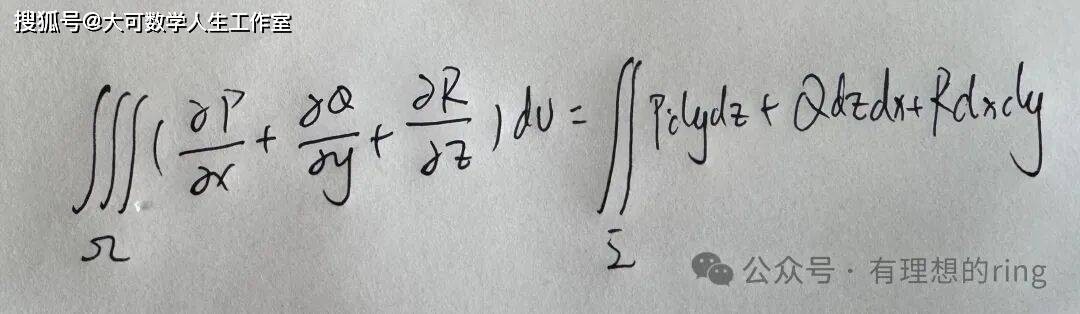 搜狐号@大可数学人生工作室
∭_Ω (∂P/∂x + ∂Q/∂y + ∂R/∂z) dv = ∬_Σ Pdydz + Qdzdx + Rdxdy
公众号 · 有理想的ring